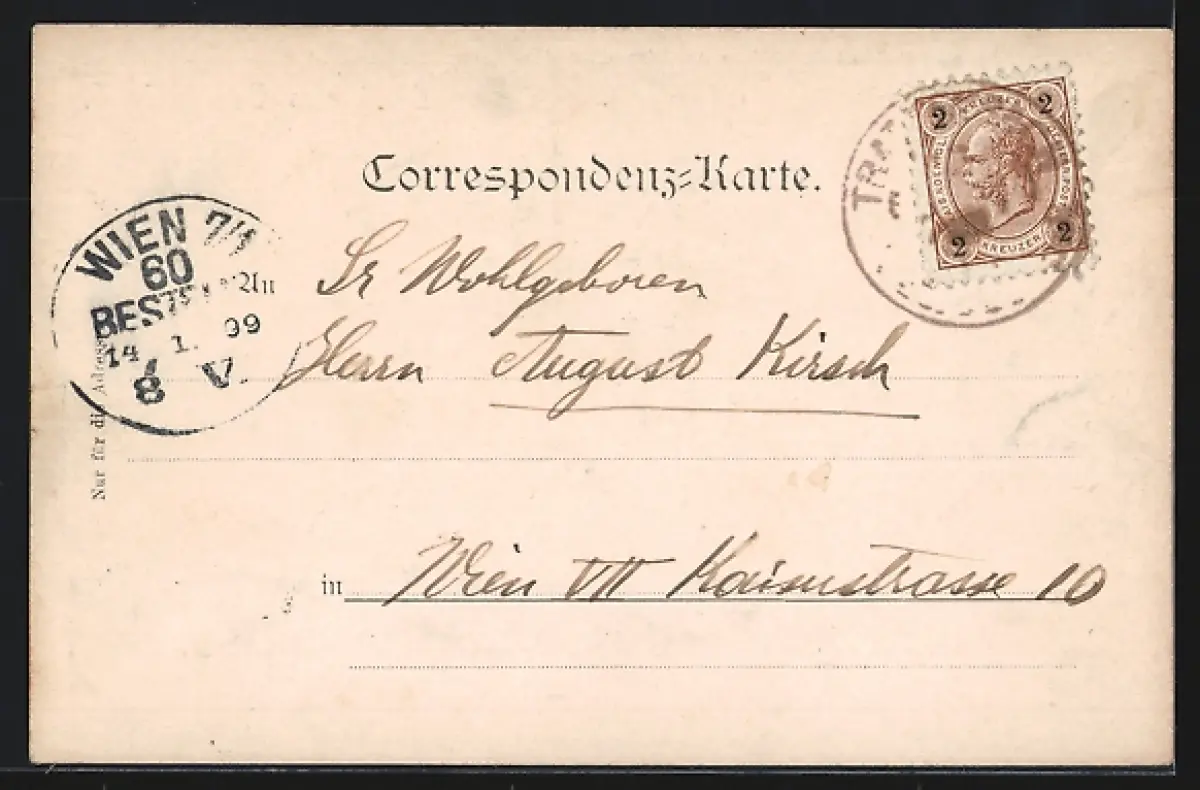 Correspondenz-Karte.
2 2
2 KREUZER 2
WIEN 7/1
60
BEST
14 1. 99
8 V.
An Sr Wohlgeboren
Herrn August Kirsch
Nur für die Adresse
in Wien VII Kaiserstrasse 10